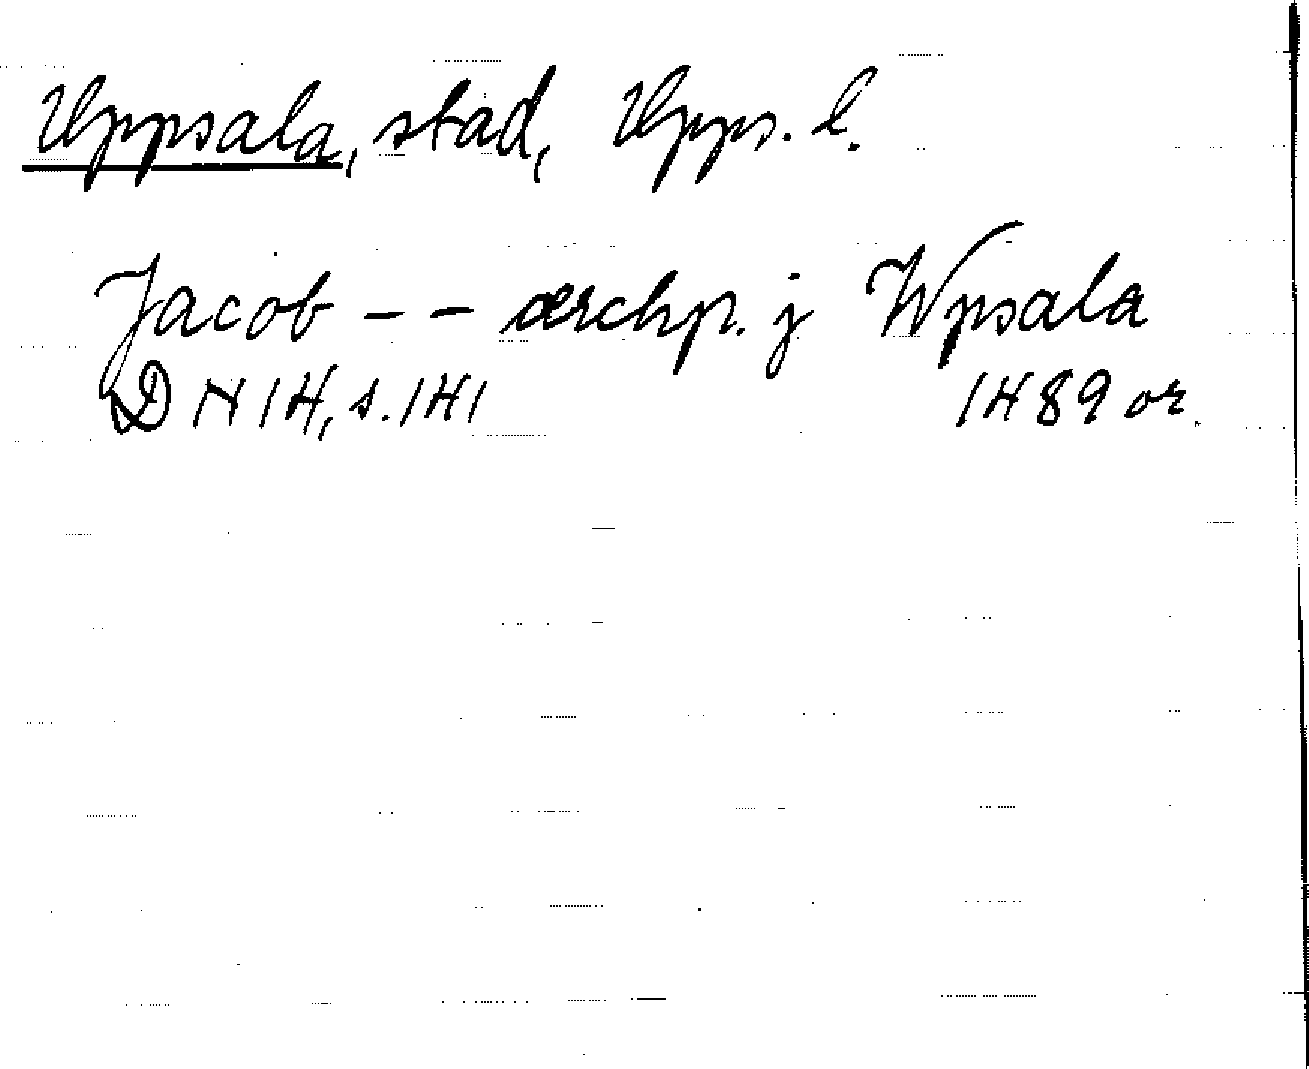 Uppsala, stad, Upps. l.
Jacob – – ærchp. j Wpsala
DN 14, s. 141 1489 or.